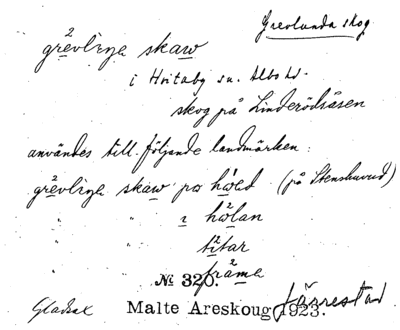 Grevlunda skog
grevlına skaw
i Hvitaby sn. Albo hd.
skog på Linderödsåsen
användes till följande landmärken:
grevlına skaw po höed (på Stenshuvud)
" " ı hölan
" " titar
" " främe
№ 320.
Gladsax Malte Areskoug 1923. Järrestad